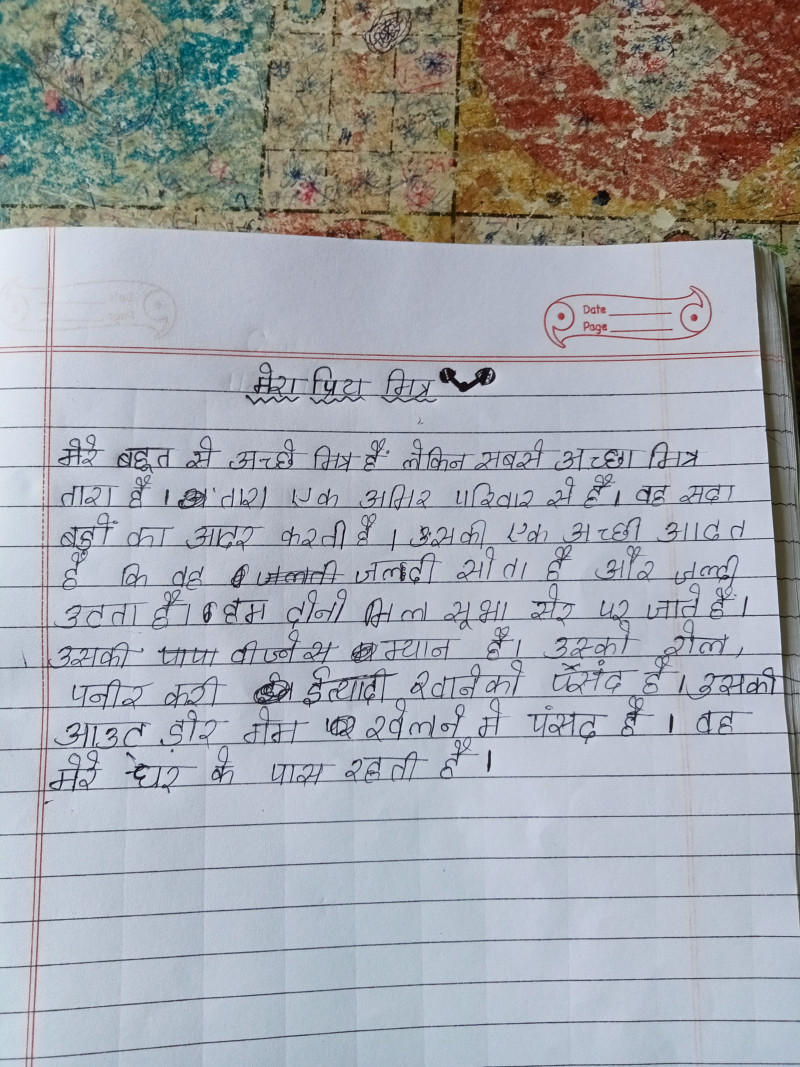 Date
Page
मेरा प्रिय मित्र
मेरे बहूत से अच्छे मित्र हैं लेकिन सबसे अच्छा मित्र
तारा हैं । तारा एक अमिर परिवार से हैं। वह सदा
बड़ों का आदर करती हैं । उसकी एक अच्छी आदत
हैं कि वह जलदी सोता हैं और जल्दी
उटता हैं। हम दोनो मिल सूभा सेर पर जाते हैं।
उसकी पापा बीज्नेस म्यान हैं। उस्को रोल,
पनीर करी ईत्यादी खानेको पंसंद हैं । उसकी
आउट डोर गेम खेलने मे पंसद हैं । वह
मेरे घर के पास रहती हैं ।